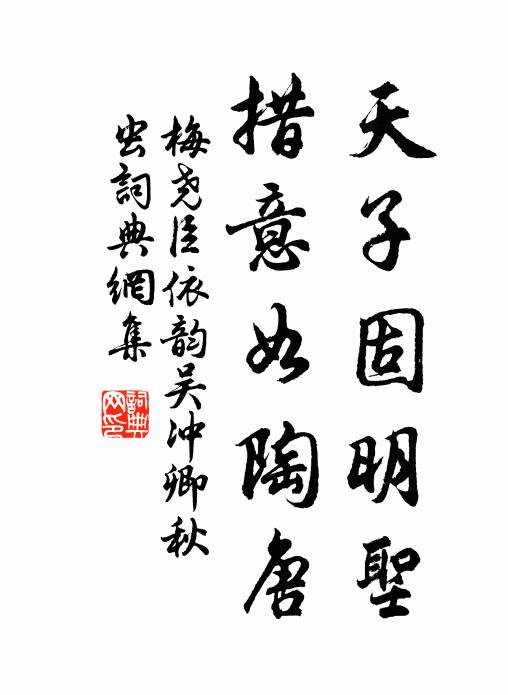 天子固明聖
措意如陶唐
梅堯臣依韵吴冲卿秋
虫詞典網集
詞典网印